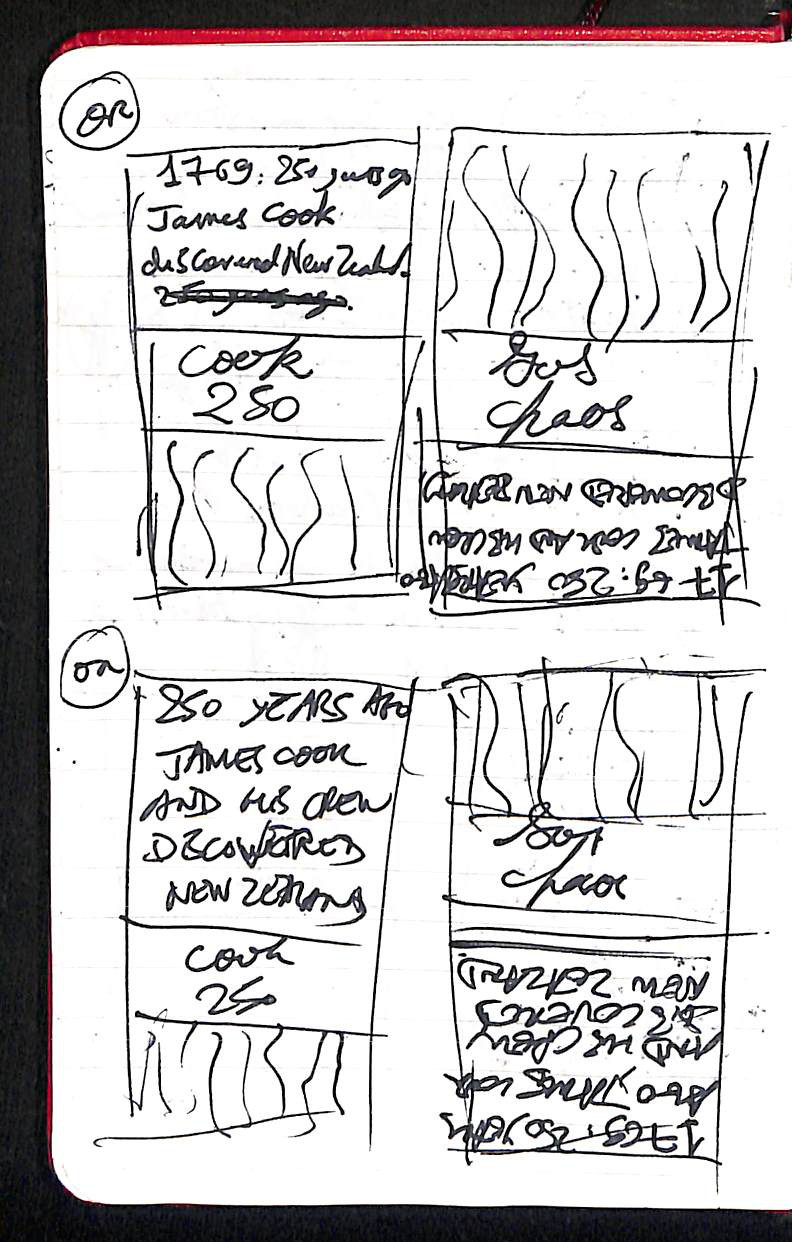 OR
1769: 250 years ago
James Cook
discovered New Zealand.
250 years ago.
Cook
250
chaos
1769: 250 YEARS AGO
JAMES COOK AND HIS CREW
DISCOVERED NEW ZEALAND
OR
250 YEARS AGO
JAMES COOK
AND HIS CREW
DISCOVERED
NEW ZEALAND
Cook
250
chaos
1769: 250 YEARS
AGO JAMES COOK
AND HIS CREW
DISCOVERED
NEW ZEALAND